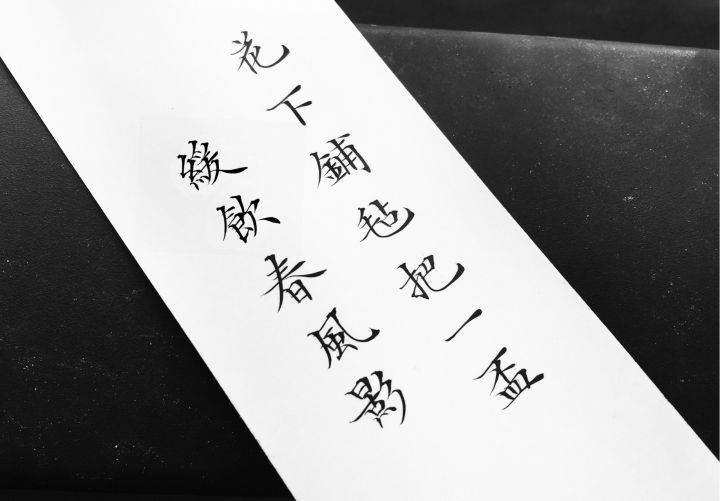 花下鋪毡把一盃
緩飲春風影